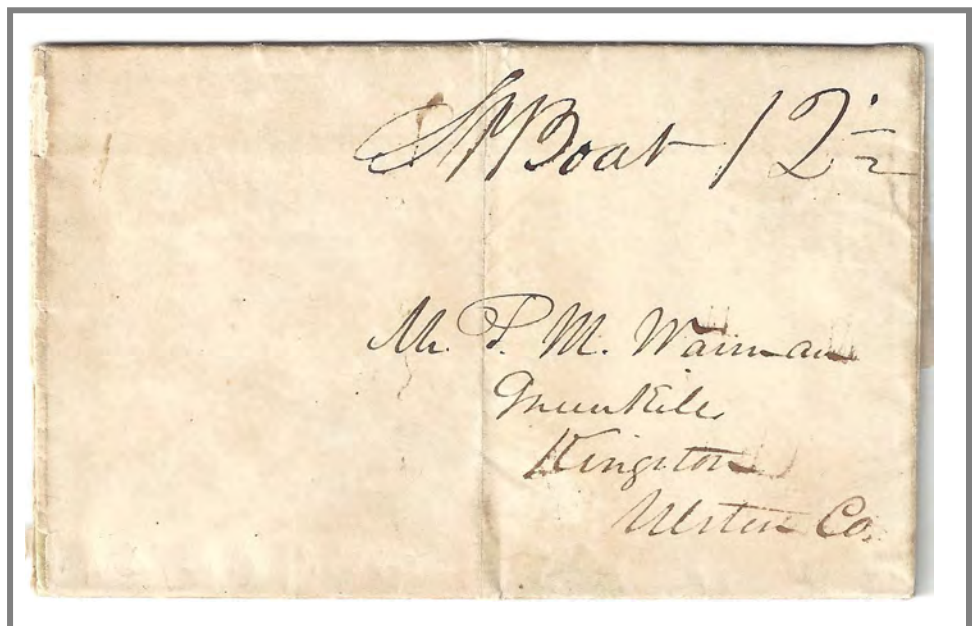 St Boat 12 1/2
Mr. P. M. Wainman
Greenkile
Kingston
Ulster Co.